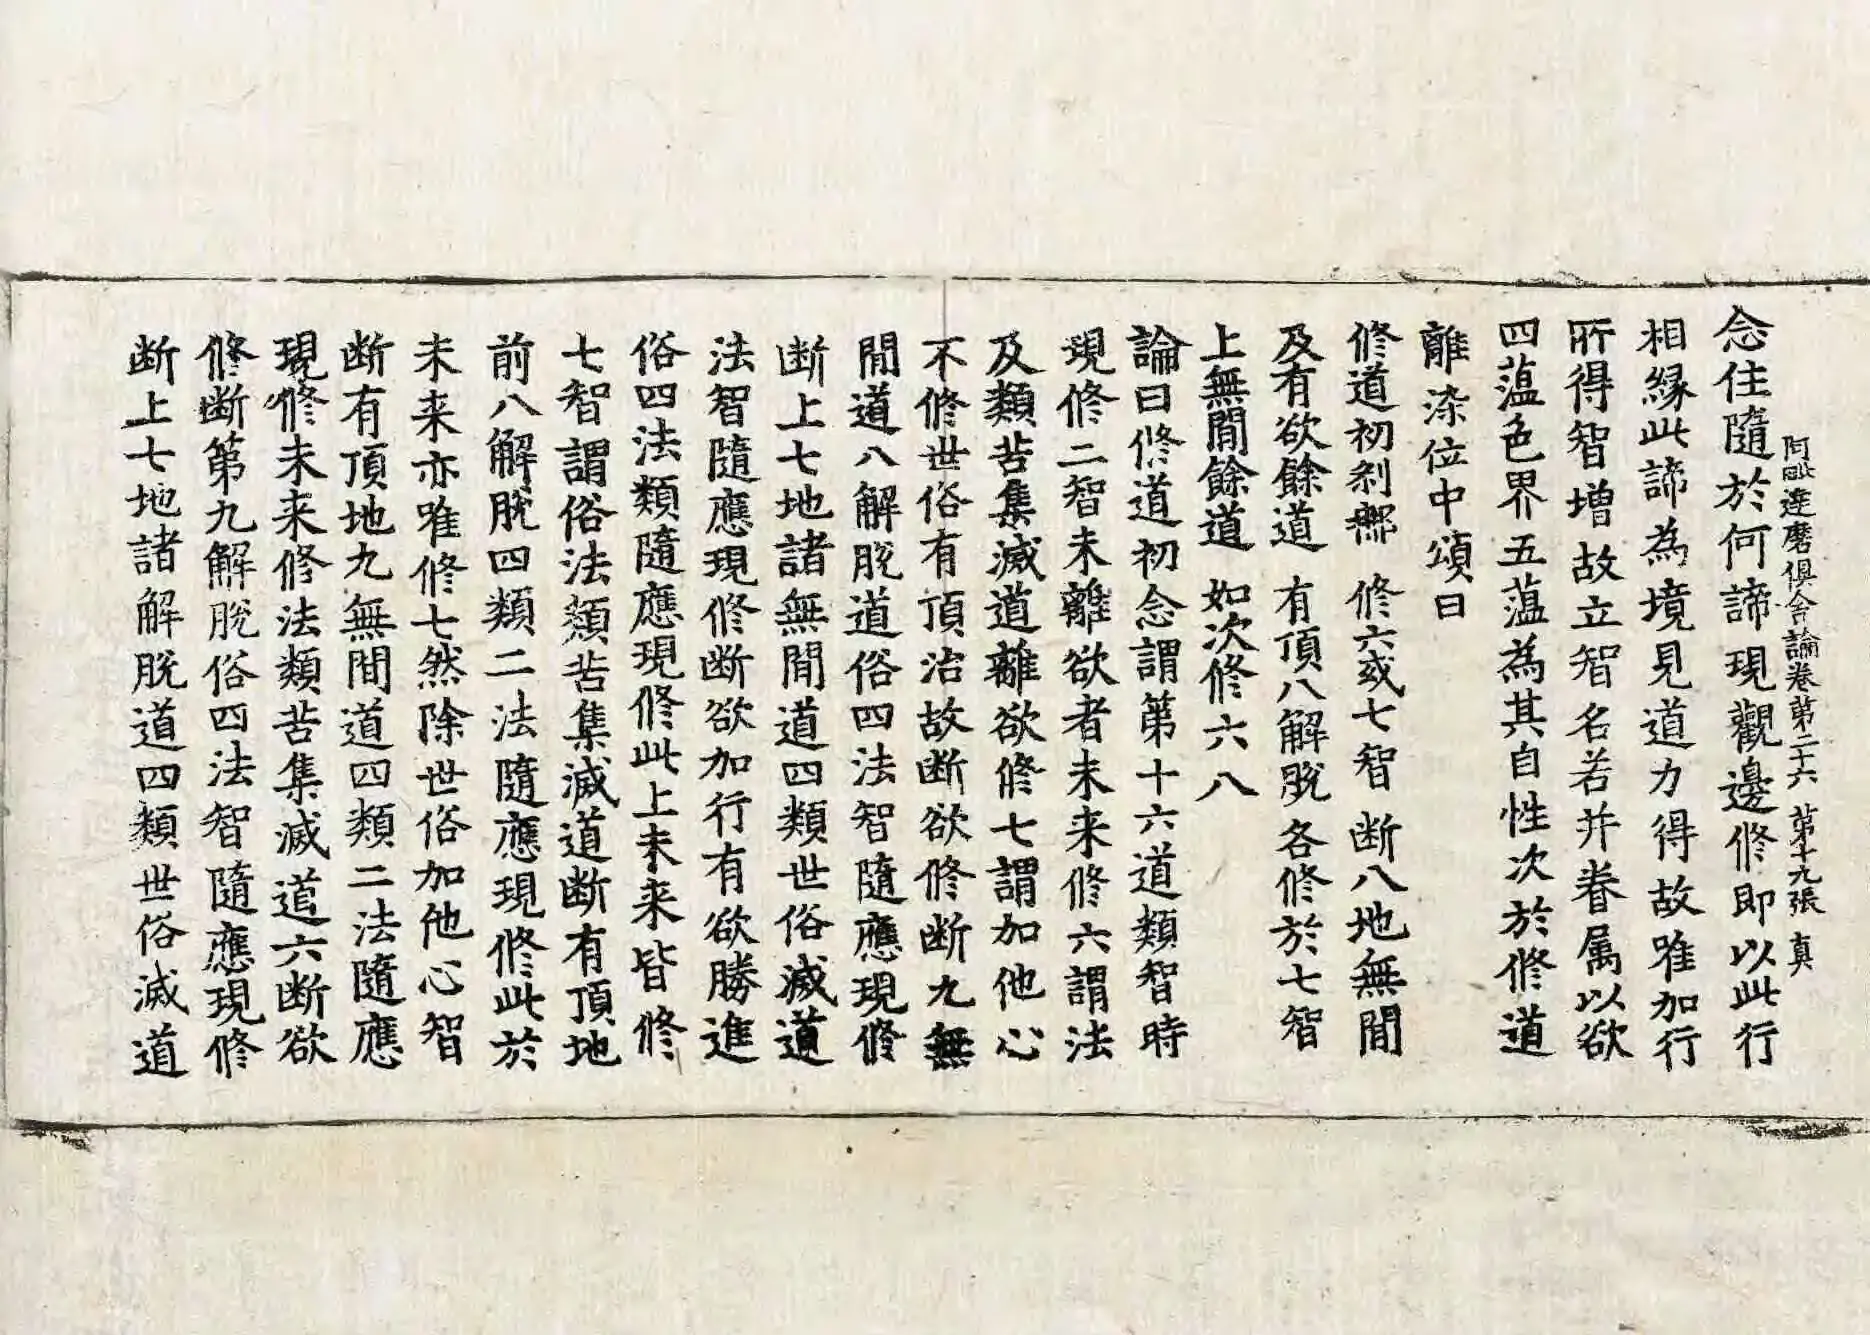 阿毗達磨俱舍論卷第二十六 第十九張 真
念住隨於何諦現觀邊修即以此行
相緣此諦為境見道力得故唯加行
所得智增故立智名若并眷属以欲
四蕰色界五蕰為其自性次於修道
離染位中頌曰
修道初刹那 修六或七智 断八地無閒
及有欲餘道 有頂八解脫 各修於七智
上無閒餘道 如次修六八
論曰修道初念謂第十六道類智時
現修二智未離欲者未来修六謂法
及類苦集滅道離欲修七謂加他心
不修世俗有頂治故断欲修断九無
閒道八解脫道俗四法智隨應現修
断上七地諸無閒道四類世俗滅道
法智隨應現修断欲加行有欲勝進
俗四法類隨應現修此上未来皆修
七智謂俗法類苦集滅道断有頂地
前八解脫四類二法隨應現修此於
未来亦唯修七然除世俗加他心智
断有頂地九無閒道四類二法隨應
現修未来修法類苦集滅道六断欲
修断第九解脫俗四法智隨應現修
断上七地諸解脫道四類世俗滅道